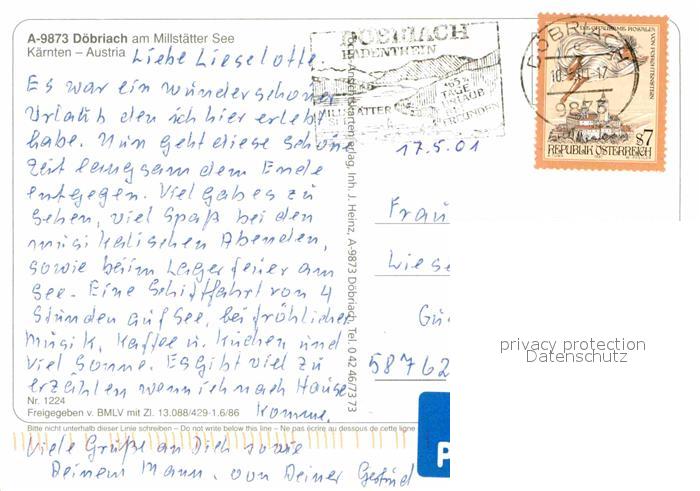 A-9873 Döbriach am Millstätter See
Kärnten – Austria
Liebe Lieselotte.
Es war ein wunderschöner
Urlaub den ich hier erlebt
habe. Nun geht diese schöne
Zeit langsam dem Ende
entgegen. Viel gab es zu
sehen, viel Spaß bei den
musikalischen Abenden,
sowie beim Lagerfeuer am
See. Eine Schiffahrt von 4
Stunden auf See, bei fröhlicher
Musik, Kaffee u. Kuchen und
viel Sonne. Es gibt viel zu
erzählen wenn ich nach Hause
komme.
Nr. 1224
Freigegeben v. BMLV mit Zl. 13.088/429-1.6/86
Bitte nicht unterhalb dieser Linie schreiben – Do not write below this line – Ne pas écrire au dessous de cette ligne
Viele Grüße an Dich sowie
Deinem Mann. von Deiner
Ansichtskartenverlag, Inh. J. Heinz, A-9873 Döbriach, Tel. 0 42 46/73 73
DÖBRIACH
RADENTHEIN
365
TAGE
URLAUB
BEI
FREUNDEN
MILLSTÄTTER
DÖBRIACH
9873
VON FORCHTENSTEIN
S7
REPUBLIK ÖSTERREICH
17.5.01
Frau
Liese
58762
P
privacy protection
Datenschutz